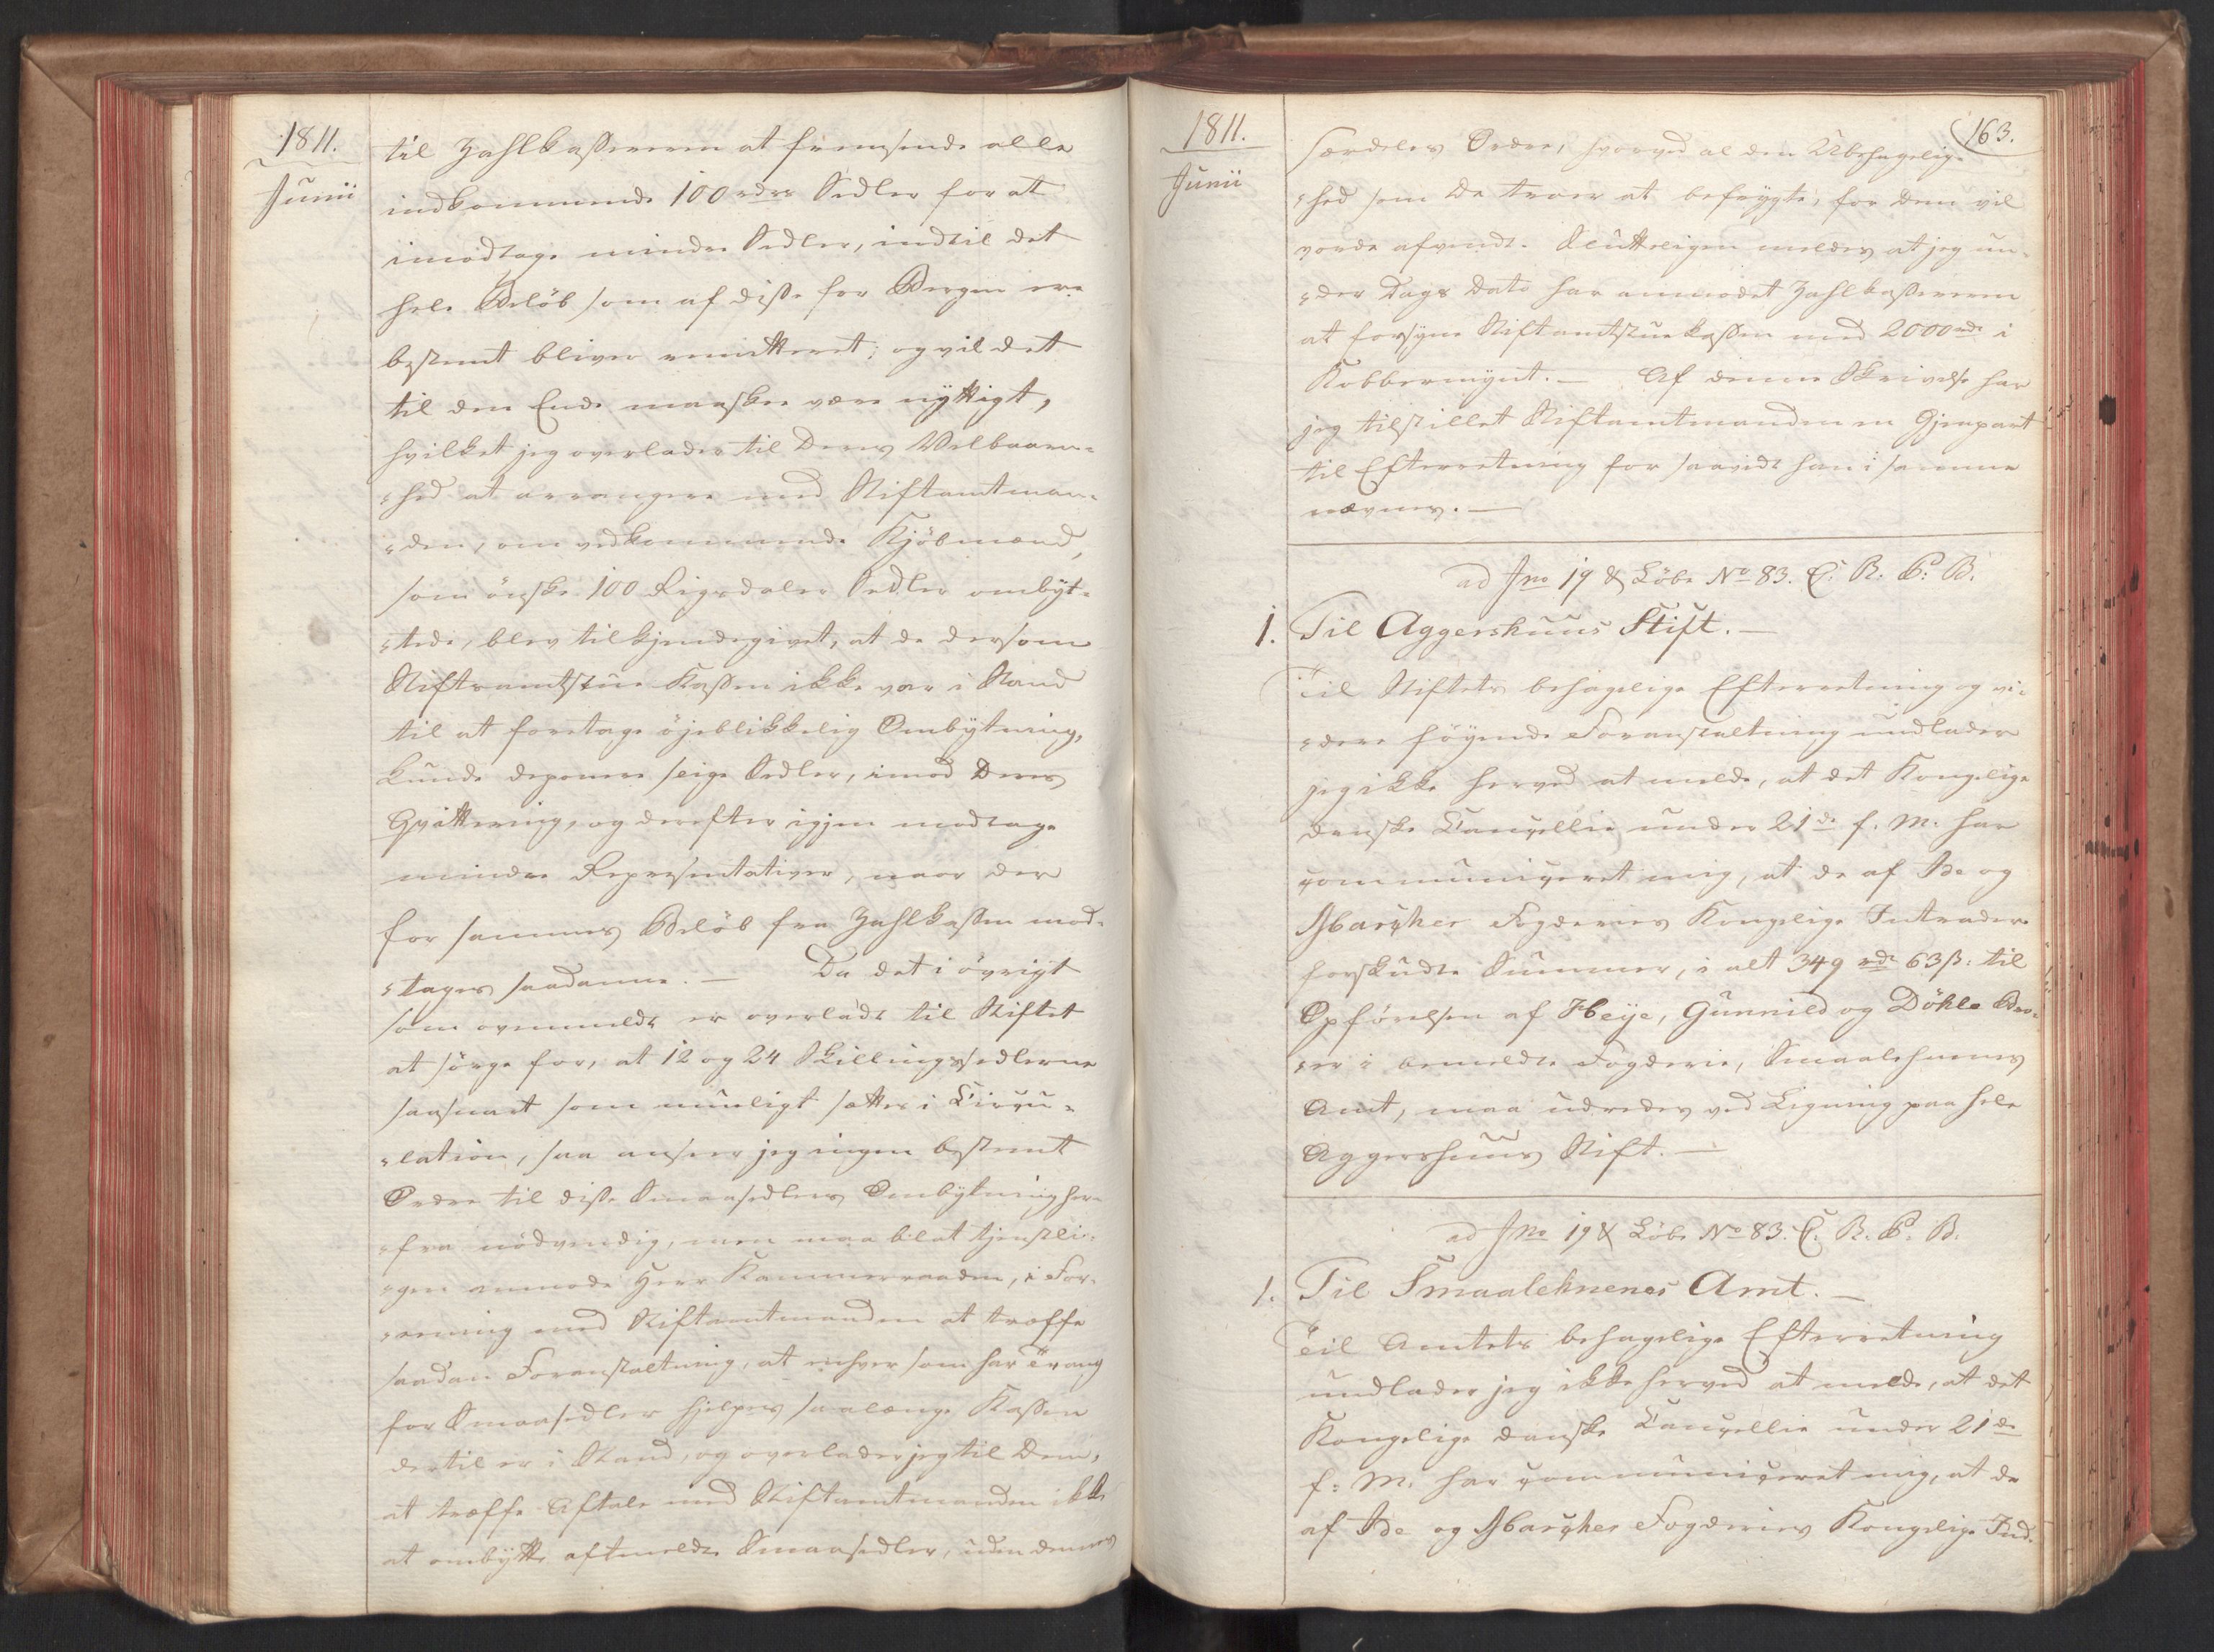 1811.
Junii
til Zahlkasserern at fremsende alle
indkommende 100 rdrs Sedler for at
imodtage mindre Sedler, indtil det
hele Beløb som af disse for Bergen ere
bestemt bliver remitteret; og vil det
til den Ende maaskee være nyttigt,
hvilket jeg overlader til Deres Velbaaren-
-hed at arrangere med Stiftamtman-
-den, om vedkommende Kjöbmænd,
som önske 100 Rigsdaler Sedler ombyt-
-tede, blev tilkjendegivet, at de dersom
Stiftsamtstue Kassen ikke var i Stand
til at foretage öjeblikkelig Ombytning,
kunde deponere slige Sedler, imod Deres
Qvittering, og derefter igjen modtage
mindre Repræsentativer, naar der
for sammes Beløb fra Zahlkassen mod-
-tages saadanne. — Da det i övrigt
som ovenmeldt er overladt til Stiftet
at sörge for, at 12 og 24 Skillingssedlerne
saasnart som muligt sættes i Circu-
-lation, saa anseer jeg ingen bestemt
Ordre til disse Smaasedlers Ombytning her-
-fra nödvendig, men maa blot tjenstli-
-gen anmode Herr Kammerraaden, i For-
-ening med Stiftamtmanden at træffe
saadan Foranstaltning, at enhver som har Trang
for Smaasedler hjelpes saalænge Kassen
dertil er i Stand, og overlader jeg til Dem,
at træffe Aftale med Stiftamtmanden ikke
at ombytte oftmeldte Smaasedler, uden dennes
1811.
Junii
163.
særdeles Ordre, hvorved al den Ubehagelig-
-hed som De troer at befrygte, for Dem vil
vorde afvendt. Slutteligen meldes at jeg un-
-der Dags Dato har anmodet Zahlkasserern
at forsyne Stiftamtstuekassen med 2000 rdr i
Kobbermynt. — Af denne Skrivelse har
jeg tilstillet Stiftamtmanden en Gjenpart
til Efterretning for saavidt han i samme
nævnes. —
ad Jno 19 & Löbe No 83. C. R. P. B.
1. Til Aggershuus Stift. —
Til Stiftets behagelige Efterretning og vi-
-dere föyende Foranstaltning undlader
jeg ikke herved at melde, at det Kongelige
danske Cancellie under 21de f. M. har
communiceret mig, at de af Ide og
Marker Fogderies Kongelige Intrader
forskudte Summer, i alt 349 rdr 63 ß. til
Opförelsen af Heije, Gunnild og Döhle Bro-
-er i bemeldte Fogderie, Smaalehnenes
Amt, maa udredes ved Ligning paa hele
Aggershuus Stift. —
ad Jno 19 & Löbe No 83. C. R. P. B.
1. Til Smaalehnenes Amt. —
Til Amtets behagelige Efterretning
undlader jeg ikke herved at melde, at det
Kongelige danske Cancellie under 21de
f. M. har communiceret mig, at de
af Ide og Marker Fogderies Kongelige Ind-